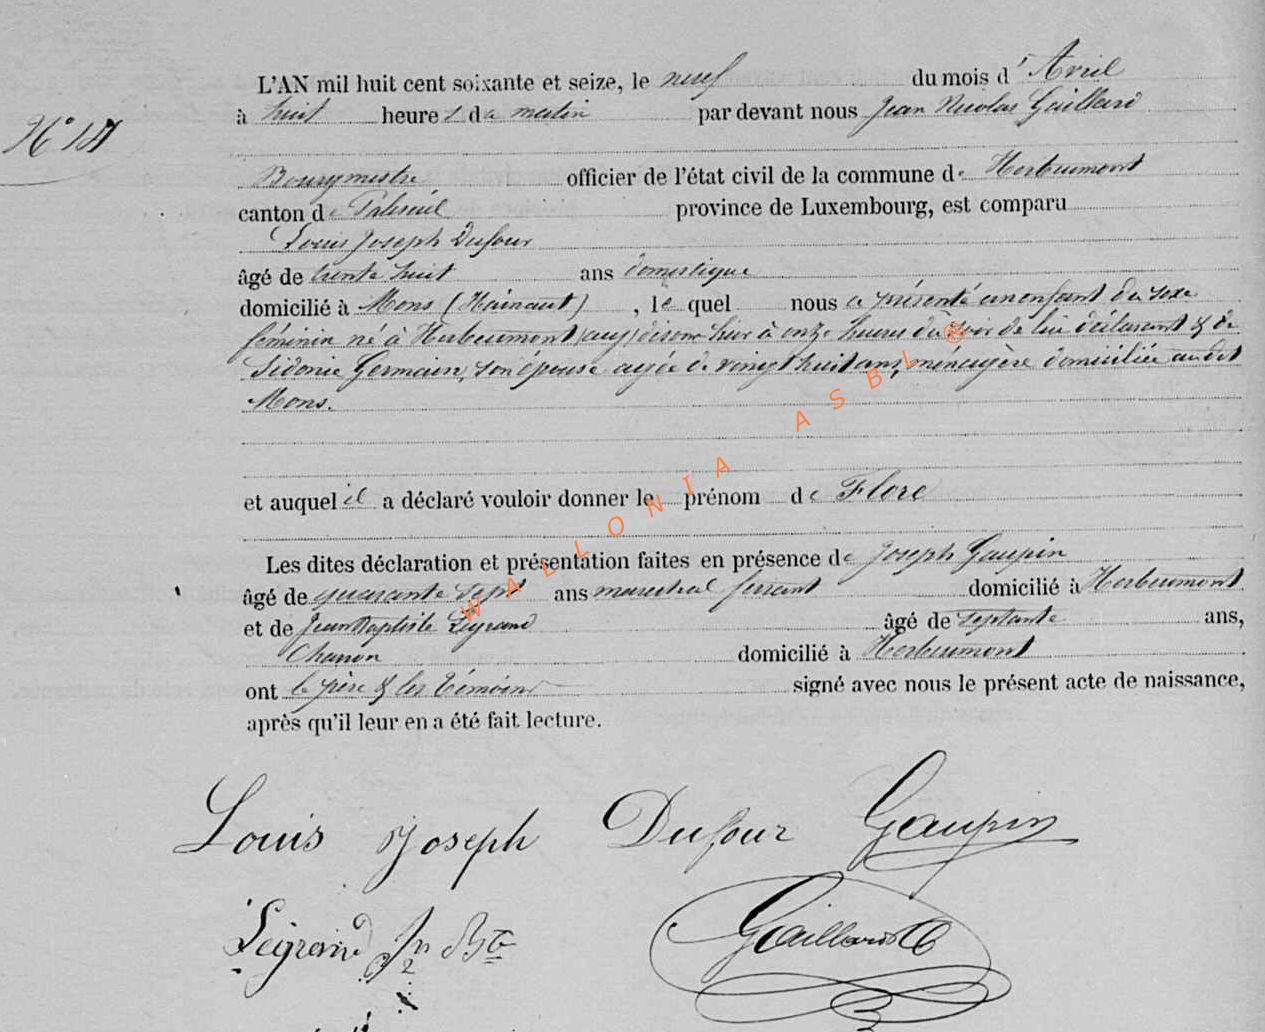 L'AN mil huit cent soixante et seize, le neuf du mois d'Avril
à huit heures du matin par devant nous Jean Nicolas Gaillard
N° 
Bourgmestre officier de l'état civil de la commune de Herbeumont
canton de Paliseul province de Luxembourg, est comparu
Louis Joseph Dufour
âgé de trente huit ans domestique
domicilié à Mons (Hainaut), lequel nous a présenté un enfant du sexe
féminin né à Herbeumont hier à onze heures du soir de lui déclarant & de
Sidonie Germain, son épouse agée de vingt huit ans, ménagère domiciliée audit
Mons.
et auquel il a déclaré vouloir donner le prénom de Flore
Les dites déclaration et présentation faites en présence de Joseph Gaupin
âgé de quarante sept ans marechal ferrant domicilié à Herbeumont
et de Jean Baptiste Legrand âgé de septante ans,
Charron domicilié à Herbeumont
ont le père & les témoins signé avec nous le présent acte de naissance,
après qu'il leur en a été fait lecture.
Louis Joseph Dufour Gaupin
Legrand Jn Bte Gaillard
WALLONIA ASBL ®